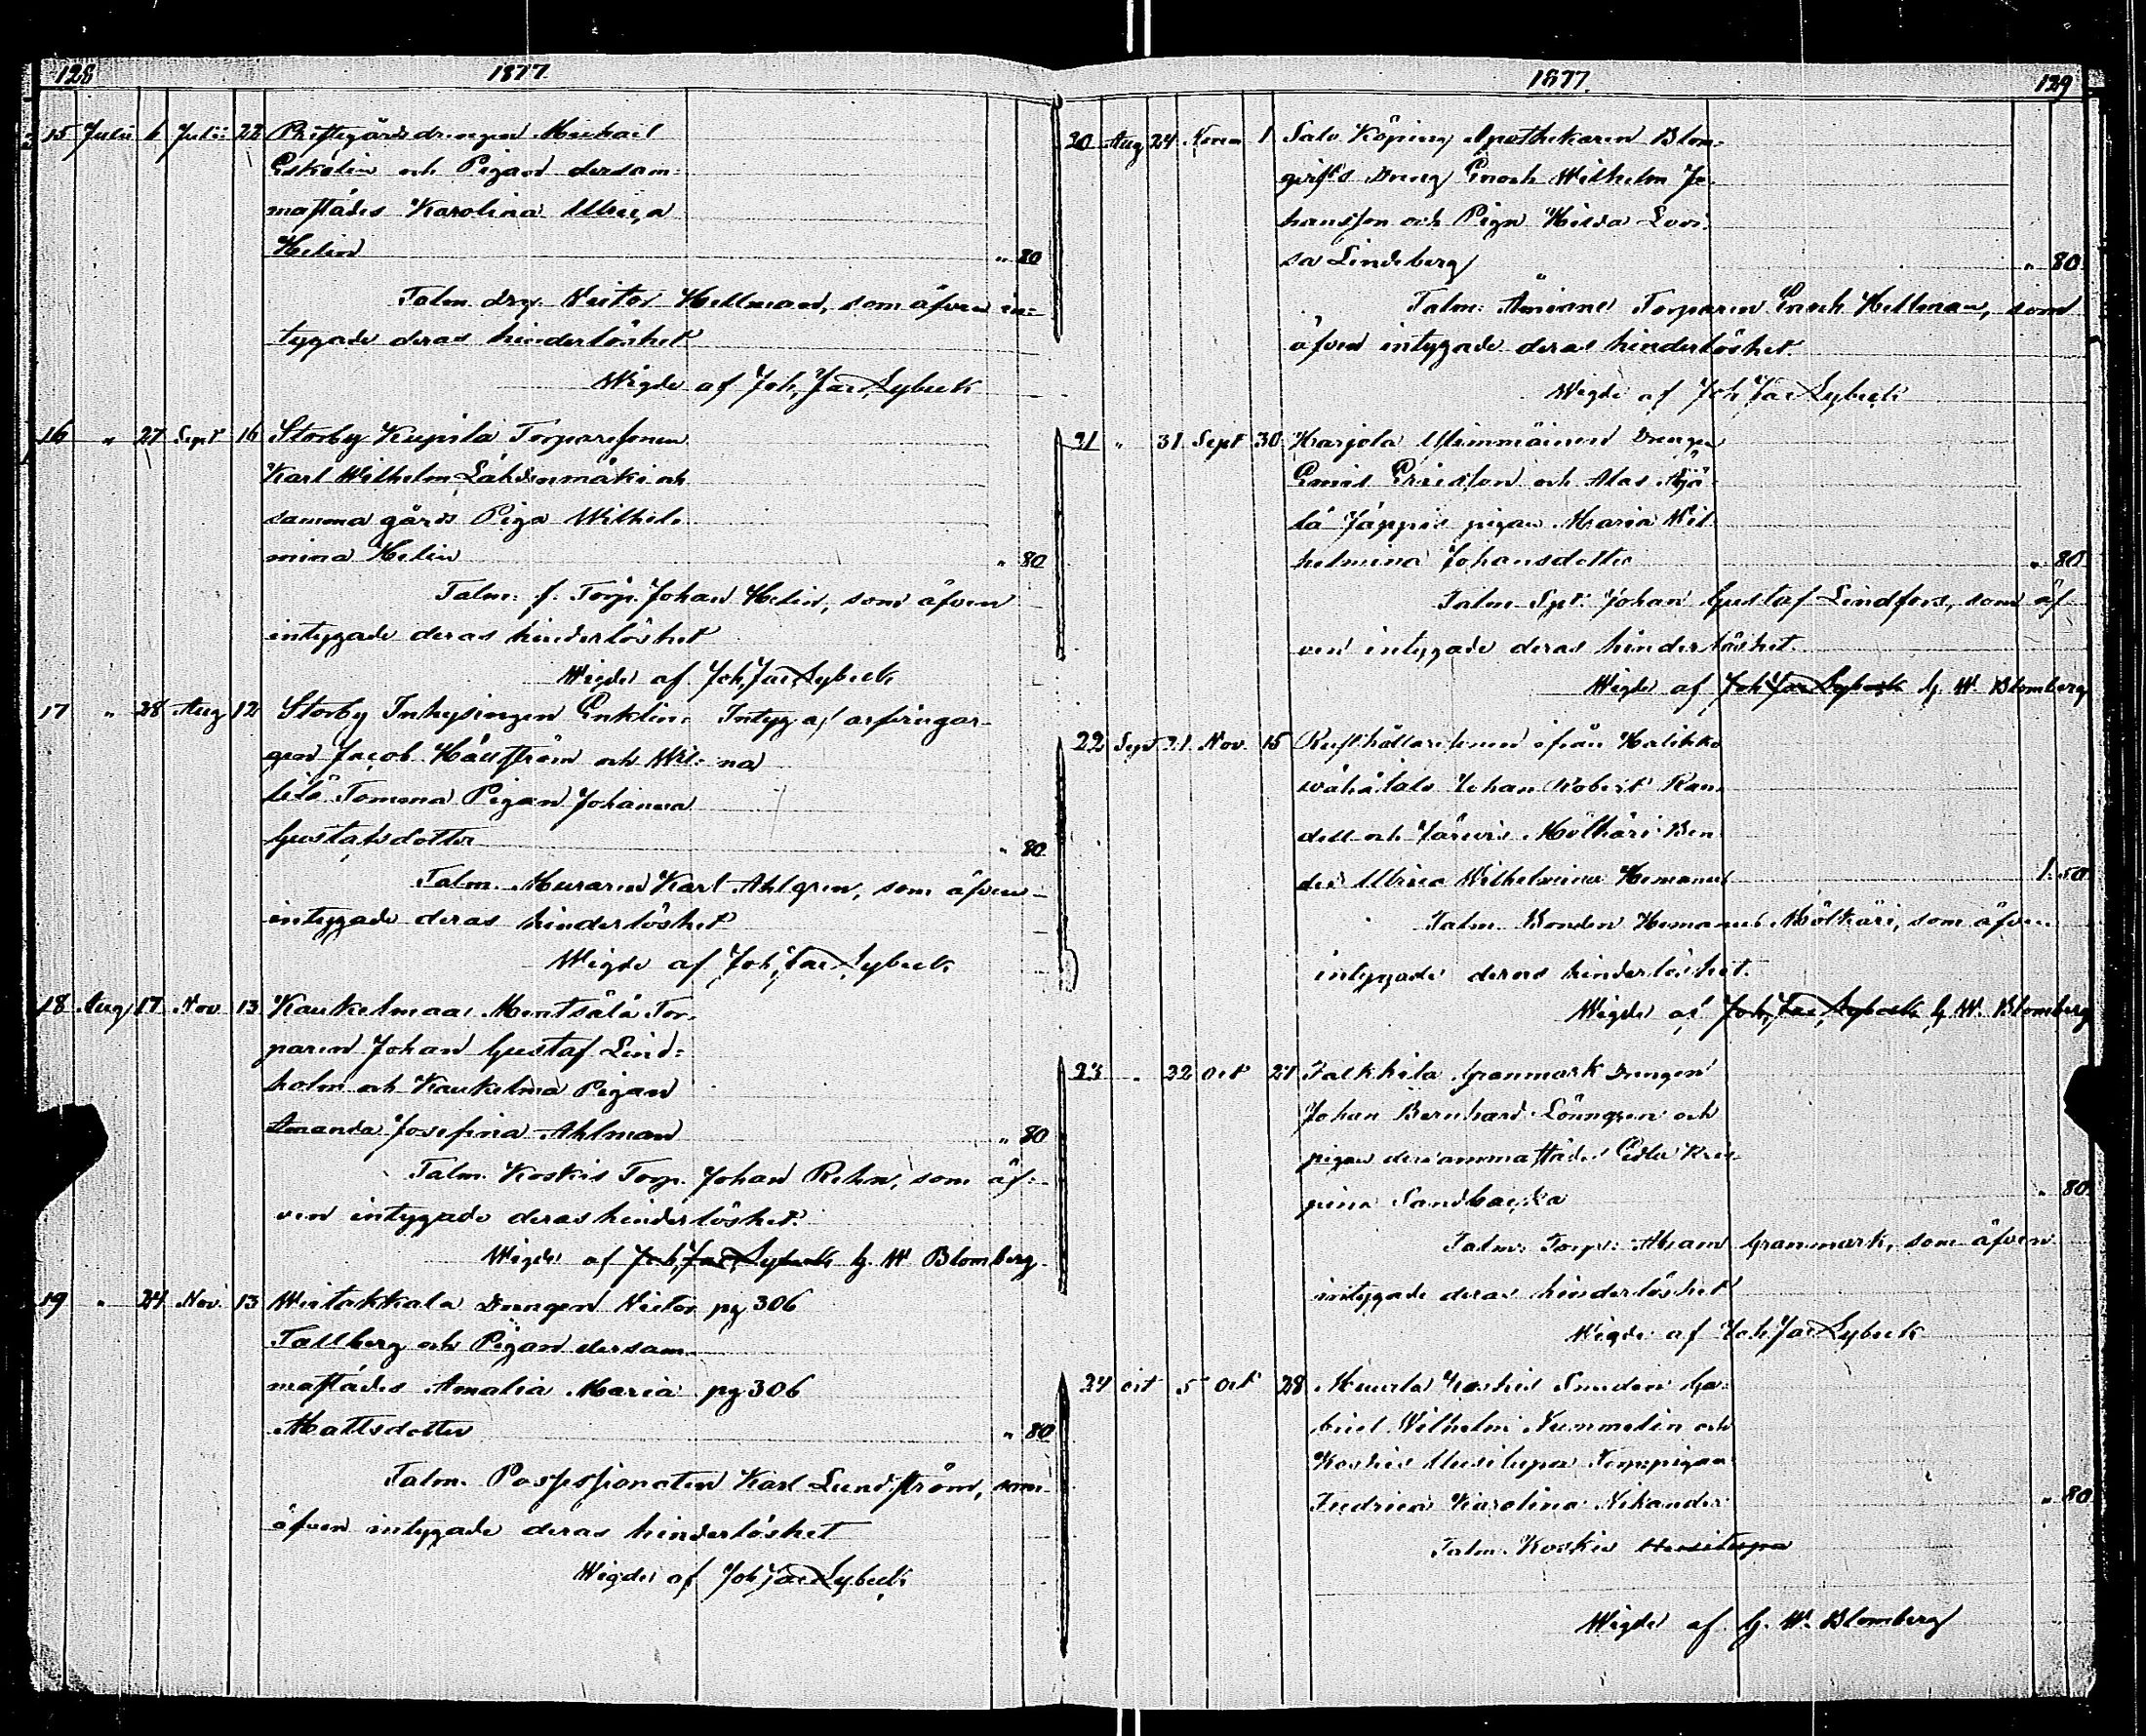 128 1877
15 Julii 6 Julii 22 Prestegårdsdrengen Michael
Eskelin och Pigan dersam-
mastädes Karolina Ulrica
Helin „ 80
Talm. drg. Victor Hellman, som äfven in-
tygade deras hinderlöshet
Wigde af Joh. Jac. Lybeck
16 „ 27 Sept 16 Storby Kupila Torparesonen
Karl Wilhelm Lähdenmäki och
samma gårds Piga Wilhel-
mina Helin „ 80
Talm. f. Torp. Johan Helin, som äfven
intygade deras hinderlöshet
Wigde af Joh. Jac. Lybeck
17 „ 28 Aug 12 Storby Inhysingen Enklin- Intyg af arfvingar-
gen Jacob Hällström och Wil- na
lilä Tomma Pigan Johanna
Gustafsdotter „ 80
Talm. Muraren Karl Ahlgren, som äfven
intygade deras hinderlöshet
Wigde af Joh. Jac. Lybeck
18 Aug 17 Nov 13 Kaukelmaa Mentsälä Tor-
paren Johan Gustaf Lind-
holm och Kaukelma Pigan
Amanda Josefina Ahlman „ 80
Talm. Koskis Torp. Johan Rehn, som äf-
ven intygade deras hinderlöshet.
Wigde af Joh. Jac. Lybeck G. W. Blomberg
19 „ 24 Nov. 13 Wiertakkala Drengen Victor pg 306
Tallberg och Pigan dersam-
mastädes Amalia Maria pg 306
Mattsdotter „ 80
Talm. Possessionaten Karl Lundström, som
äfven intygade deras hinderlöshet
Wigde af Joh. Jac. Lybeck
1877. 129
20 Aug 24 Novem 1 Salo Köping Apothekaren Blom-
qvists Dreng Enoch Wilhelm Jo-
hansson och Pigan Hilda Lovi-
sa Lindeberg „ 80
Talm: Torparen Enoch Hellman, som
äfven intygade deras hinderlöshet.
Wigde af Joh. Jac. Lybeck
21 „ 31 Sept 30 Karjola Ylimmäinen Drengen
Emil Ericsson och Alas
lä Jäppis pigan Maria Wil-
helmina Johansdotter „ 80
Talm. Spt. Johan Gustaf Lindfors, som äf-
ven intygade deras hinderlöshet.
Wigde af Joh. Jac. Lybeck G. W. Blomberg
22 Sept 21 Nov. 15 Rusthållaresonen ifrån Halikko
Johan Robert Ran-
dell och Järvis Mölkäri Bon-
des Ulrica Wilhelmina Hemanus 1. 50
Talm. Bonden Hemanus Mölkäri, som äfven
intygade deras hinderlöshet.
Wigde af Joh. Jac. Lybeck G. W. Blomberg
23 „ 22 Oct 21 Granmark Drengen
Johan Bernhard Lönngren och
pigan dersammastädes Edla Kris-
pina Sandbacka „ 80
Talm. Torp. Abram Granmark, som äfven
intygade deras hinderlöshet
Wigde af Joh. Jac. Lybeck
24 Oct 5 Oct 28 Koskis Smeden Ga-
briel Wilhelm Nummelin och
Koskis Uusitupa Torppigan
Fredrica Karolina Nikander „ 80
Talm. Koskis Uusitupa
Wigde af G. W. Blomberg